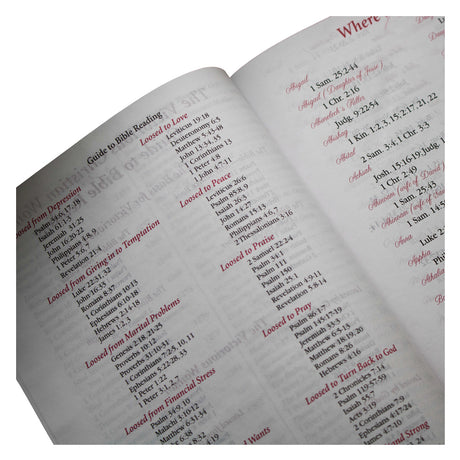 Guide to Bible Reading
Loosed from Depression
Psalm 34:6, 7, 18
Isaiah
John 16:20-22
Philippians 4:8, 9
1 Peter 5:6, 7
Revelation 21:4
Loosed from Giving in to Temptation
Luke 22:31-32
Romans 8:37
1 Corinthians 10:13
Ephesians 6:10-18
Hebrews 2:14-18
James 1:2, 3
Loosed from Marital Problems
Genesis 2:18, 21-25
Proverbs 10:12
Proverbs 31:10-31
1 Corinthians 7:2-5, 10, 11
Ephesians 5:22-28, 33
1 Peter 3:1, 2, 7
1 Peter
Loosed from Financial Stress
Psalm 34:9, 10
Malachi 3:10-12
Matthew 6:31-34
Luke 6:38
Loosed to Love
Leviticus 19:18
Deuteronomy 6:5
Matthew 5:43-45
John 13:34, 35
Romans
1 Corinthians 13
1 Peter 4:8
1 John 4:7-11
Loosed to Peace
Leviticus 26:6
Psalm 85:8, 9
Isaiah 26:3
John 14:27
Romans 15:13
Philippians 4:6, 7
2 Thessalonians 3:16
Loosed to Praise
2 Samuel 22:4
Psalm 34:1
Psalm 150
Isaiah 25:1
Revelation 4:9-11
Revelation 5:8-14
Loosed to Pray
Psalm 86:1-7
Psalm 145:17-19
Jeremiah 33:3
Matthew 6:5-13
Matthew 18:19, 20
Romans 8:26
Hebrews 4:16
Loosed to Turn Back to God
2 Chronicles 7:14
Psalm 119:57-59
Isaiah 55:7
Acts 3:19
Ephesians 4:17-24
James 4:7-10
and Strong
Wants
Where
Abigail
1 Sam. 25:2-44
Abigail (Daughter of Jesse)
1 Chr. 2:16
Abimelech's Killer
Judg. 9:22-54
Abishag
1 Kin. 1:2, 3, 15; 2:17, 21, 22
Abital
2 Sam. 3:4, 1 Chr. 3:3
Achsah
Josh. 15:16-19, Judg. 1
1 Chr. 2:49
Ahinoam (wife of David)
1 Sam. 25:43
1 Sam. 14:50
Anna
Luke 2
Apphia
Daugh